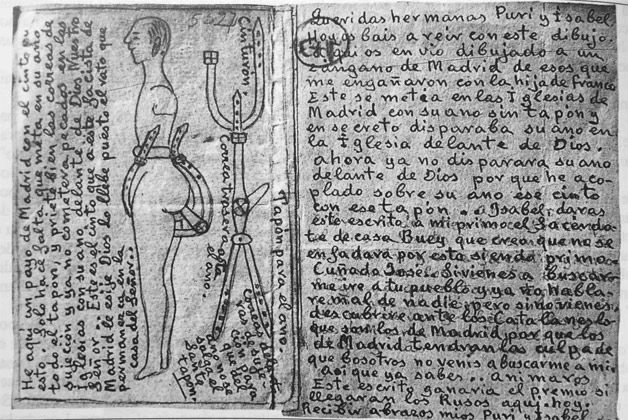 He aquí un payo de Madrid con el cinto pu
esto le hace falta que meta en su ano
todo el tapon, y apriete bien las correas de
sugecion y ya no cometera pecados en las
Iglesias con su ano delante de Dios. Nuestro
Señor... Este es el cinto que a este gacista de
Madrid le exije Dios lo lleve puesto el rato que
permanezca en la
casa del Señor..
5-21
Cinturon.
Correa trasera
del ano.
Tapon para el ano.
correa
tapon
Queridas hermanas Puri y Isabel
Hoy os bais a reir con este dibujo.
Aqui os en vio dibujado a un
zangano de Madrid de esos que
me engañaron con la hija de Franco
Este se metia en las Iglesias de
Madrid con su ano sin tapon y
en secreto disparaba su ano en
la Iglesia delante de Dios.
ahora ya no disparara su ano
delante de Dios por que he aco-
plado sobre su ano ese cinto
con ese tapon.. a Isabel, daras
este escrito a mi primo el Sacerdo-
te de casa Buey que crea que no se
en fadara por esta siendo primo..
Cuñada Jose.. Si vienes a buscar-
me ire a tu pueblo y ya no habla-
re mal de nadie, pero si no vienes,
des cubrire ante los Catalanes lo
que son los de Madrid, por que los
de Madrid tendran las culpa de
que bosotros no venis a buscarme a mi.
asi que ya sabes.. animaros
Este escrito ganaria el premio si
llegaran los Rusos aqui. hoy.
Recibir abrazos mios Puri y Isabel